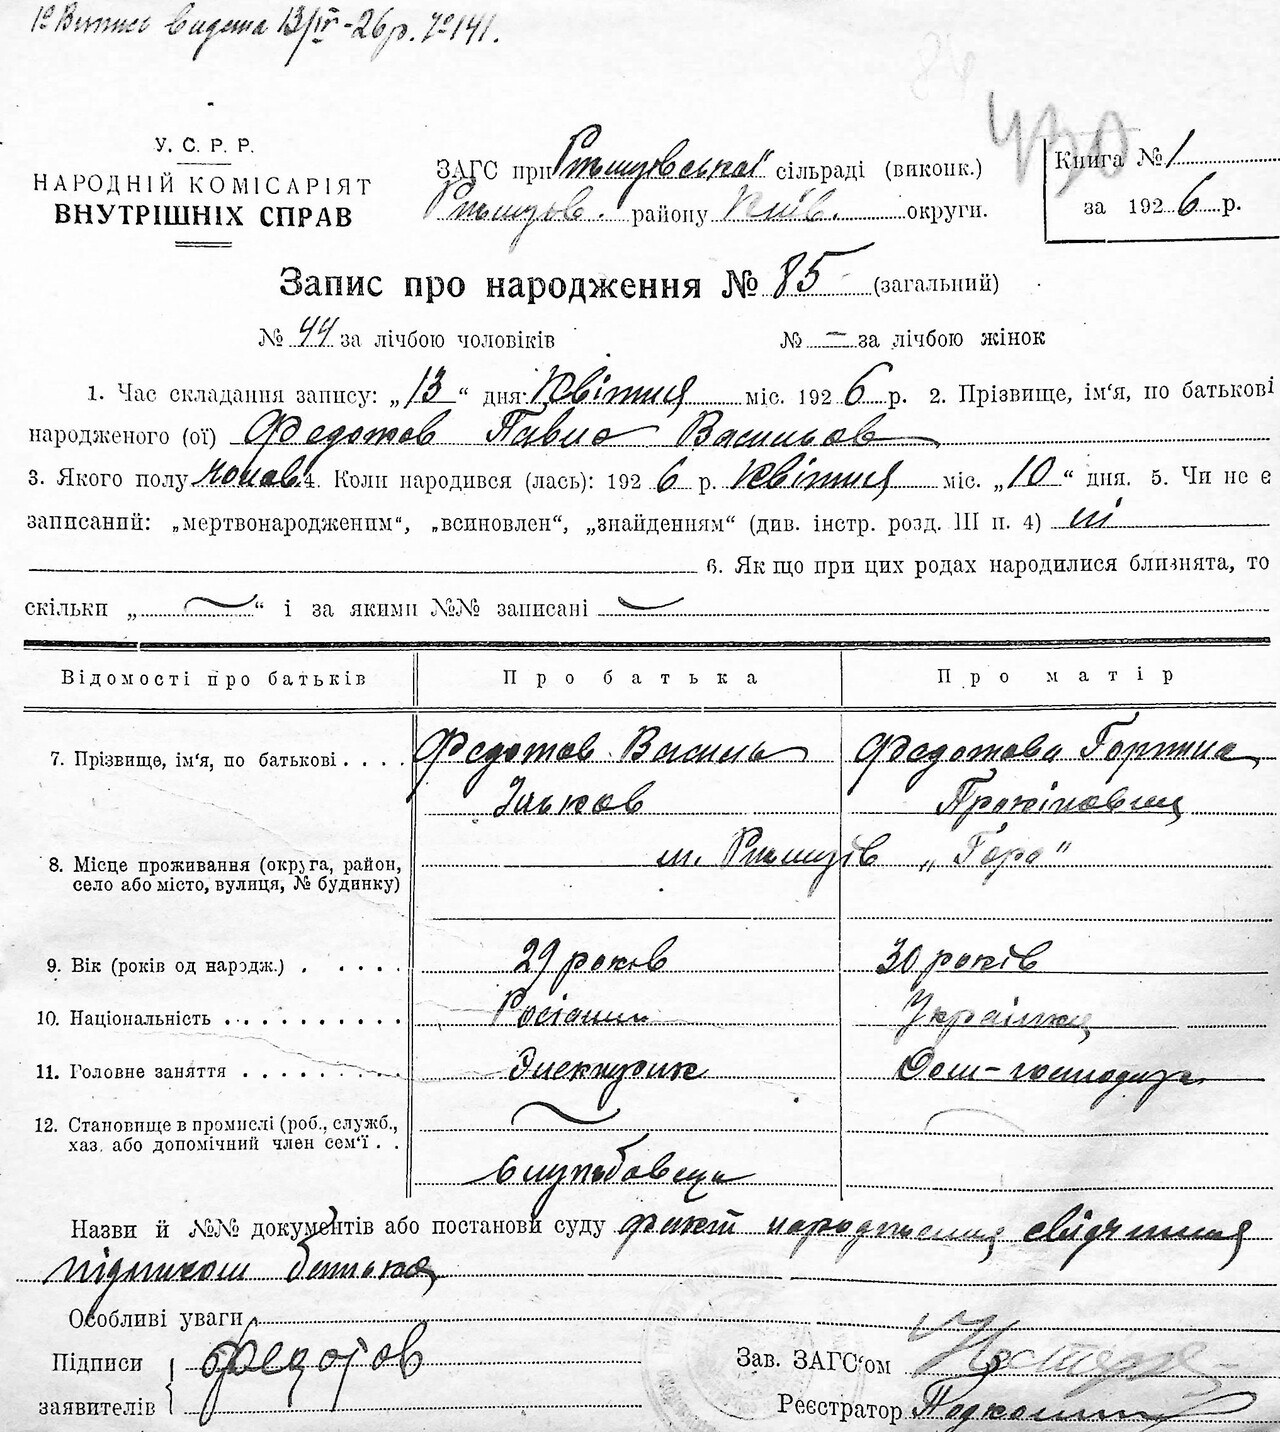 Випись видана 13/IV-26р. № 141.
430
У. С. Р. Р.
НАРОДНІЙ КОМІСАРІЯТ
ВНУТРІШНІХ СПРАВ
ЗАГС при Ржищівської сільраді (виконк.)
Ржищов. району Київ. округи.
Книга № 1
за 1926 р.
Запис про народження № 85 (загальний)
№ 44 за лічбою чоловіків № — за лічбою жінок
1. Час складання запису: „13“ дня Квітня міс. 1926 р. 2. Прізвище, ім'я, по батькові
народженого (ої) Федотов Павло Васильов
3. Якого полу чолов. 4. Коли народився (лась): 1926 р. Квітня міс. „10“ дня. 5. Чи не є
записаний: „мертвонародженим“, „всиновлен“, „знайденням“ (див. інстр. розд. III п. 4) ні
6. Як що при цих родах народилися близнята, то
скільки „ — “ і за якими №№ записані —
Відомості про батьків Про батька Про матір
7. Прізвище, ім'я, по батькові . . . . Федотов Василь Федотова Горпина
Ільков Прокіповна
8. Місце проживання (округа, район, м. Ржищів „Гора“
село або місто, вулиця, № будинку)
9. Вік (років од народж.) . . . . . 29 років 30 років
10. Національність . . . . . . . . . . Росіянин Українка
11. Головне заняття . . . . . . . . . Электрик Дом-господарка
12. Становище в промислі (роб., служб.,
хаз. або допомічний член сем'ї . .
службовець
Назви й №№ документів або постанови суду факт народження свідчиния
підписом батька
Особливі уваги
Підписи Федотов Зав. ЗАГС'ом
заявителів Реєстратор